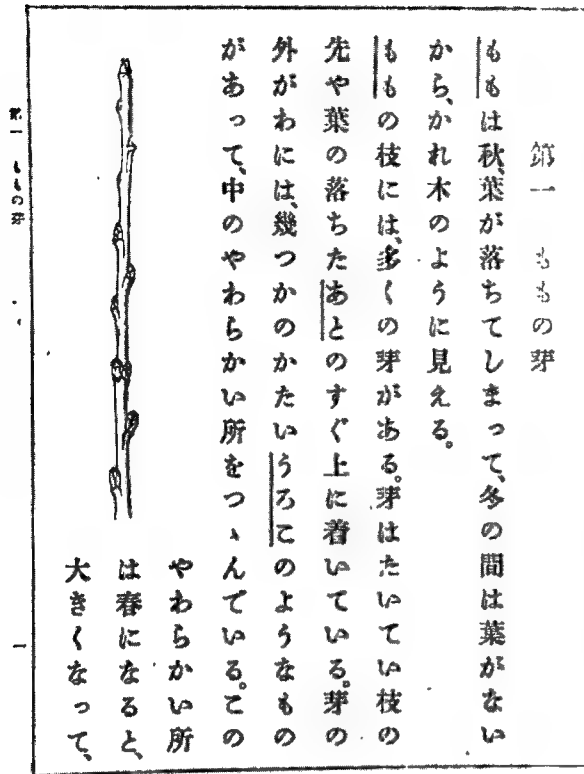 第一　ももの芽
ももは秋、葉が落ちてしまって、冬の間は葉がない
から、かれ木のように見える。
ももの枝には、多くの芽がある。芽はたいてい枝の
先や葉の落ちたあとのすぐ上に着いている。芽の
外がわには、幾つかのかたいうろこのようなもの
があって、中のやわらかい所をつゝんでいる。この
やわらかい所
は春になると、
大きくなって、
第一　ももの芽
一